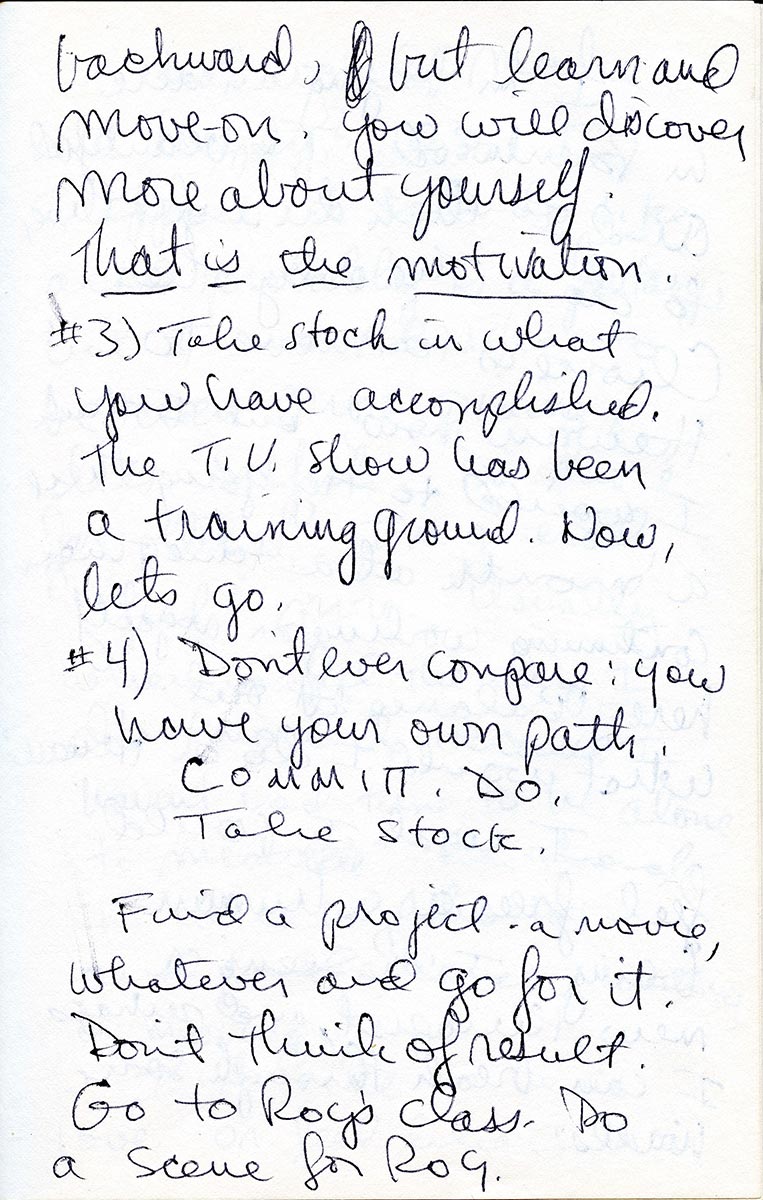 backward, but learn and
move-on. You will discover
more about yourself.
That is the motivation.
#3) Take stock in what
you have accomplished.
The T.V. show has been
a training ground. Now,
lets go.
#4) Don't ever compare: you
have your own path.
COMMITT. DO.
Take stock.
Find a project - a movie,
whatever and go for it.
Don't think of result.
Go to Roy's class. Do
a scene for Roy.